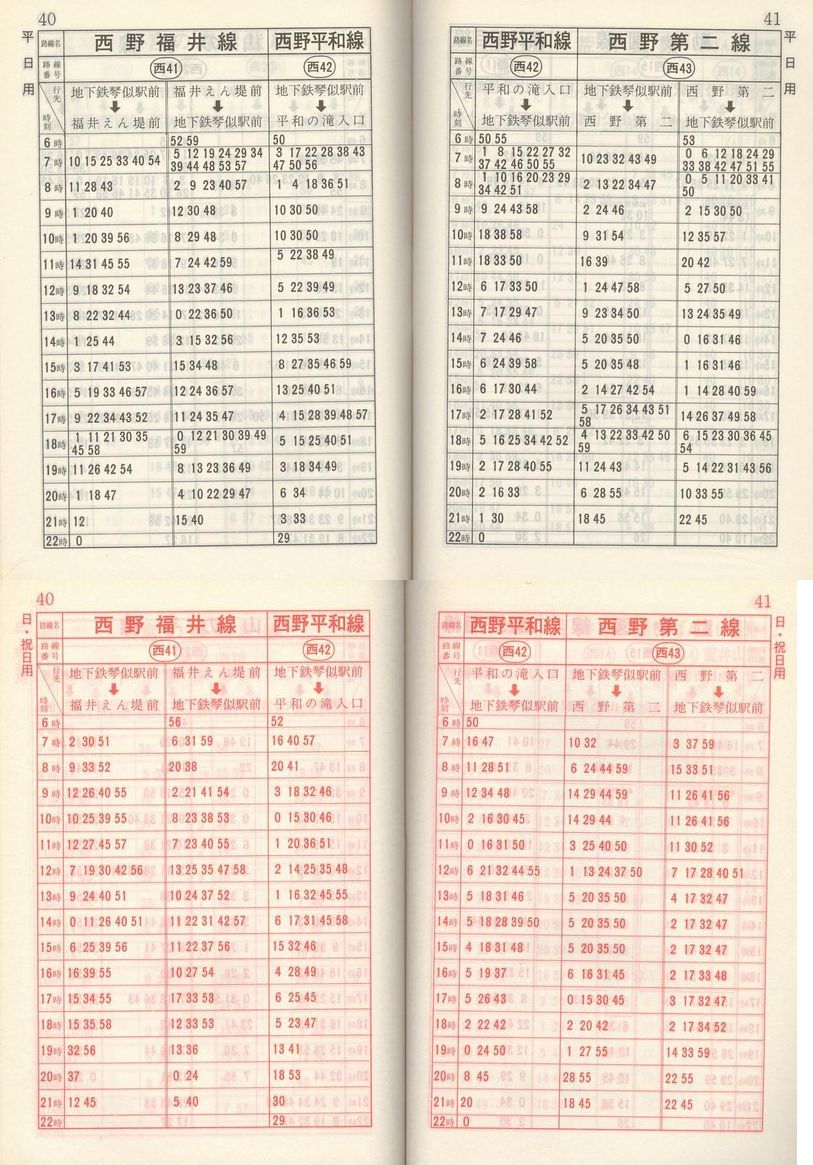 40
平日用
路線名 西野福井線 西野平和線
路線番号 西41 西42
行先 時刻 地下鉄琴似駅前➡福井えん堤前 福井えん堤前➡地下鉄琴似駅前 地下鉄琴似駅前➡平和の滝入口
6時 52 59 50
7時 10 15 25 33 40 54 5 12 19 24 29 34 39 44 48 53 57 3 17 22 28 38 43 47 50 56
8時 11 28 43 2 9 23 40 57 1 4 18 36 51
9時 1 20 40 12 30 48 10 30 50
10時 1 20 39 56 8 29 48 10 30 50
11時 14 31 45 55 7 24 42 59 5 22 38 49
12時 9 18 32 54 13 23 37 46 5 22 39 49
13時 8 22 32 44 0 22 36 50 1 16 36 53
14時 1 25 44 3 15 32 56 12 35 53
15時 3 17 41 53 15 34 48 8 27 35 46 59
16時 5 19 33 46 57 12 24 36 57 13 25 40 51
17時 9 22 34 43 52 11 24 35 47 4 15 28 39 48 57
18時 1 11 21 30 35 45 58 0 12 21 30 39 49 59 5 15 25 40 51
19時 11 26 42 54 8 13 23 36 49 3 18 34 49
20時 1 18 47 4 10 22 29 47 6 34
21時 12 15 40 3 33
22時 0 29
41
平日用
路線名 西野平和線 西野第二線
路線番号 西42 西43
行先 時刻 平和の滝入口➡地下鉄琴似駅前 地下鉄琴似駅前➡西野第二 西野第二➡地下鉄琴似駅前
6時 50 55 53
7時 1 8 15 22 27 32 37 42 46 50 55 10 23 32 43 49 0 6 12 18 24 29 33 38 42 47 51 55
8時 1 10 16 20 23 29 34 42 51 2 13 22 34 47 0 5 11 20 33 41 50
9時 9 24 43 58 2 24 46 2 15 30 50
10時 18 38 58 9 31 54 12 35 57
11時 18 33 50 16 39 20 42
12時 6 17 33 50 1 24 47 58 5 27 50
13時 7 17 29 47 9 23 34 50 13 24 35 49
14時 7 24 46 5 20 35 50 0 16 31 46
15時 6 24 39 58 5 20 35 48 1 16 31 46
16時 6 17 30 44 2 14 27 42 54 1 14 28 40 59
17時 2 17 28 41 52 5 17 26 34 43 51 58 14 26 37 49 58
18時 5 16 25 34 42 52 4 13 22 33 42 50 59 6 15 23 30 36 45 54
19時 2 17 28 40 55 11 24 43 5 14 22 31 43 56
20時 2 16 33 6 28 55 10 33 55
21時 1 30 18 45 22 45
22時 0
40
日・祝日用
路線名 西野福井線 西野平和線
路線番号 西41 西42
行先 時刻 地下鉄琴似駅前➡福井えん堤前 福井えん堤前➡地下鉄琴似駅前 地下鉄琴似駅前➡平和の滝入口
6時 56 52
7時 2 30 51 6 31 59 16 40 57
8時 9 33 52 20 38 20 41
9時 12 26 40 55 2 21 41 54 3 18 32 46
10時 10 25 39 55 8 23 38 53 0 15 30 46
11時 12 27 45 57 7 23 40 55 1 20 36 51
12時 7 19 30 42 56 13 25 35 47 58 2 14 25 35 48
13時 9 24 40 51 10 24 37 52 1 16 32 45 55
14時 0 11 26 40 51 11 22 31 42 57 6 17 31 45 58
15時 6 25 39 56 11 22 37 56 15 32 46
16時 16 39 55 10 27 54 4 28 49
17時 15 34 55 17 33 58 6 25 45
18時 15 35 58 12 33 53 5 23 47
19時 32 56 13 36 13 41
20時 37 0 24 18 53
21時 12 45 5 40 30
22時 29
41
日・祝日用
路線名 西野平和線 西野第二線
路線番号 西42 西43
行先 時刻 平和の滝入口➡地下鉄琴似駅前 地下鉄琴似駅前➡西野第二 西野第二➡地下鉄琴似駅前
6時 50
7時 16 47 10 32 3 37 59
8時 11 28 51 6 24 44 59 15 33 51
9時 12 34 48 14 29 44 59 11 26 41 56
10時 2 16 30 45 14 29 44 11 26 41 56
11時 0 16 31 50 3 25 40 50 11 30 52
12時 6 21 32 44 55 1 13 24 37 50 7 17 28 40 51
13時 5 18 31 46 5 20 35 50 4 17 32 47
14時 5 18 28 39 50 5 20 35 50 2 17 32 47
15時 4 18 31 48 5 20 35 50 2 17 32 47
16時 5 19 37 6 16 31 45 2 17 33 48
17時 5 26 43 0 15 30 45 3 17 32 47
18時 2 22 42 2 20 42 2 17 34 52
19時 0 24 50 1 27 55 14 33 59
20時 8 45 28 55 22 55
21時 20 18 45 22 45
22時 0